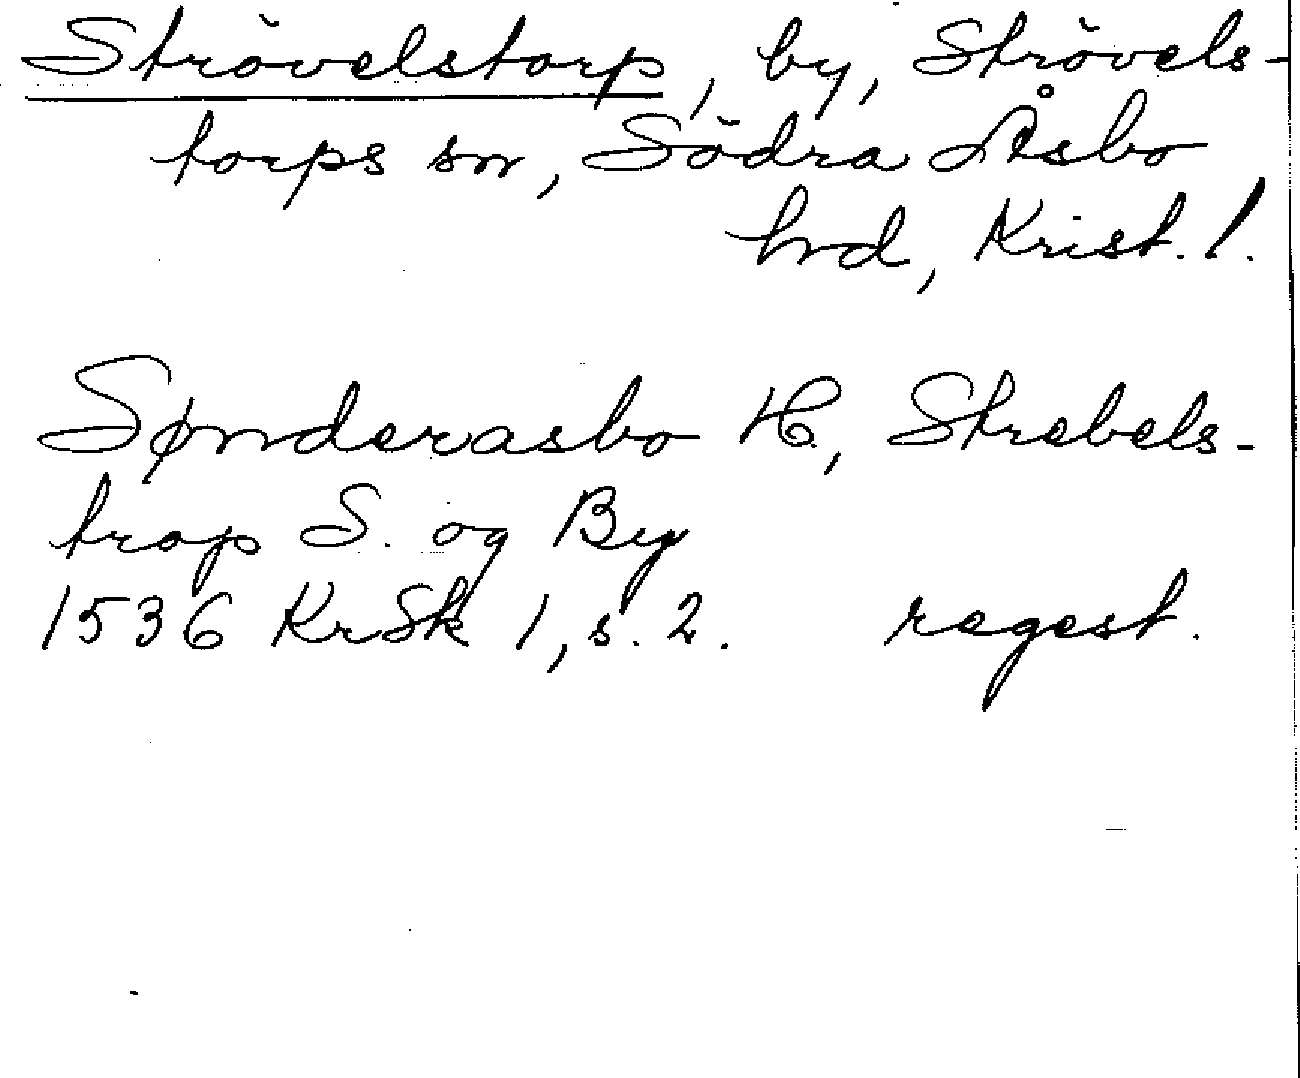 Strövelstorp, by, Strövels-
torps sn, Södra Åsbo
hrd, Krist. l.
Sønderasbo H, Strebels-
trop S. og By
1536 KrSk 1, s. 2. regest.